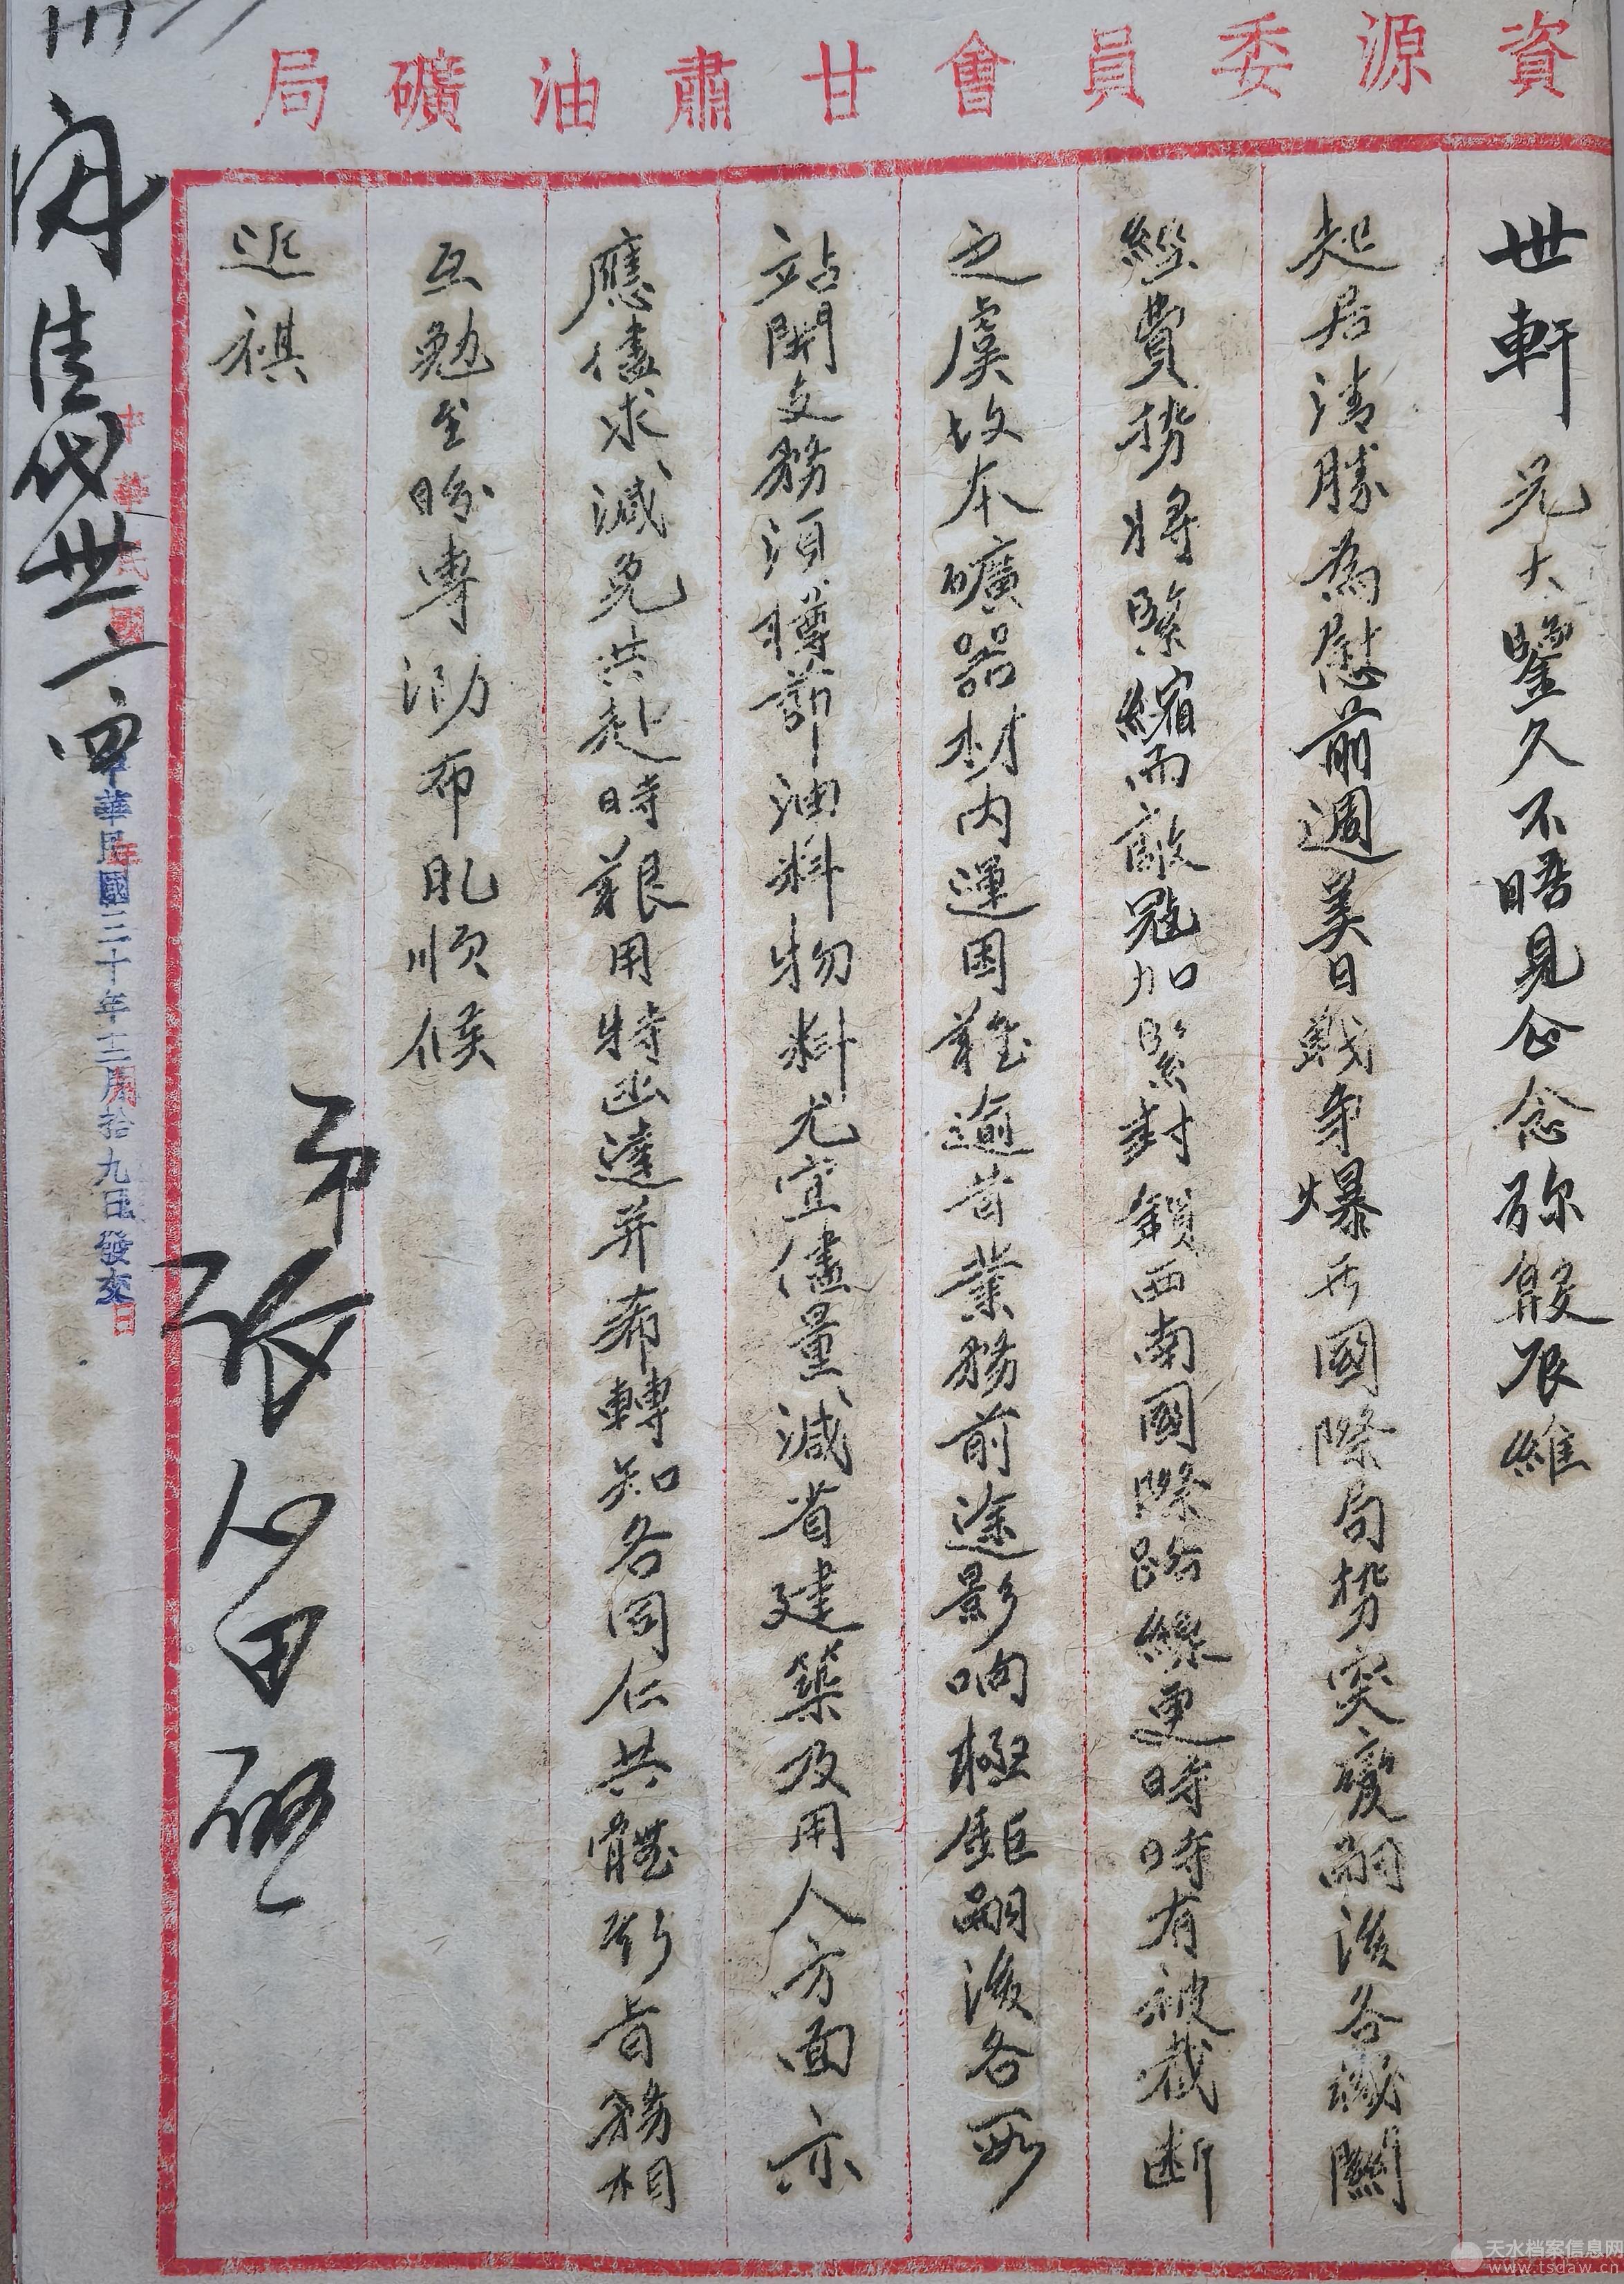 資源委員會甘肅油礦局
世軒兄大鑒久不晤見企念弥殷辰維
起居清勝為慰前週美日戰争爆發國際局勢突變嗣後各機關
經費勢將緊縮而敵寇加緊封鎖西南國際路線更時時有被截斷
之虞故本礦器材内運困難逾昔業務前途影响極鉅嗣後各所
站開支務須撙節油料物料尤宜儘量減省建築及用人方面亦
應儘求減免共赴時艱用特函達并希轉知各同仁共體斯旨務相
互勉至盼專泐布臆順候
近祺
弟張心田啟
中華民國三十年十二月拾九日發交
天水档案信息网
www.tsdaw.cn